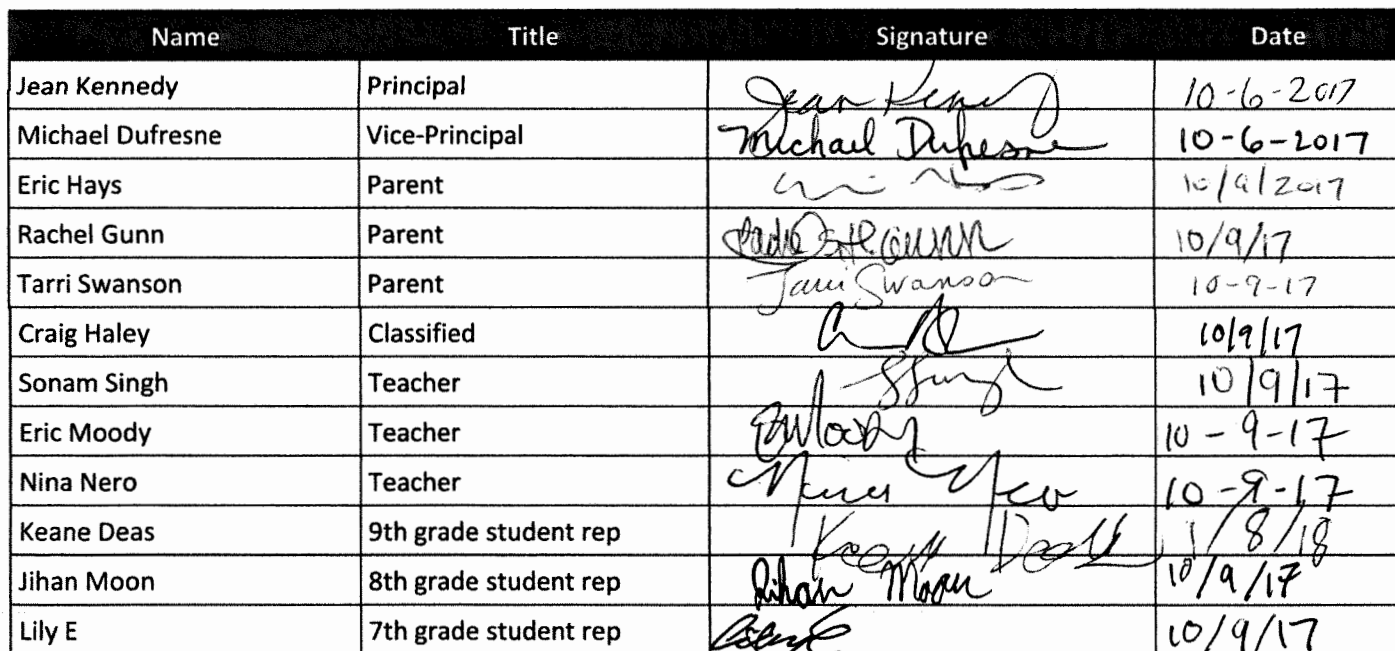 Name Title Signature Date
Jean Kennedy Principal Jean Kenedy 10-6-2017
Michael Dufresne Vice-Principal Michael Dufresne 10-6-2017
Eric Hays Parent 10/9/2017
Rachel Gunn Parent 10/9/17
Tarri Swanson Parent Tarri Swanson 10-9-17
Craig Haley Classified 10/9/17
Sonam Singh Teacher SSingh 10/9/17
Eric Moody Teacher EMoody 10-9-17
Nina Nero Teacher Nina Nero 10-9-17
Keane Deas 9th grade student rep 1/8/18
Jihan Moon 8th grade student rep Jihan Moon 10/9/17
Lily E 7th grade student rep 10/9/17